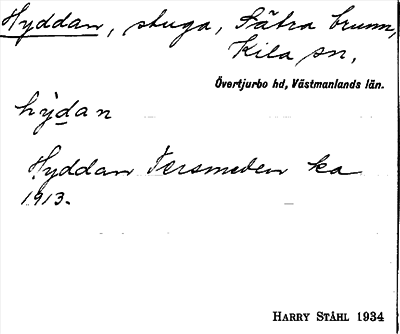 Hyddan, stuga, Sätra brunn,
Kila sn,
Övertjurbo hd, Västmanlands län.
hỳdan
Hyddan Tersmeden ka
1913.
HARRY STÅHL 1934